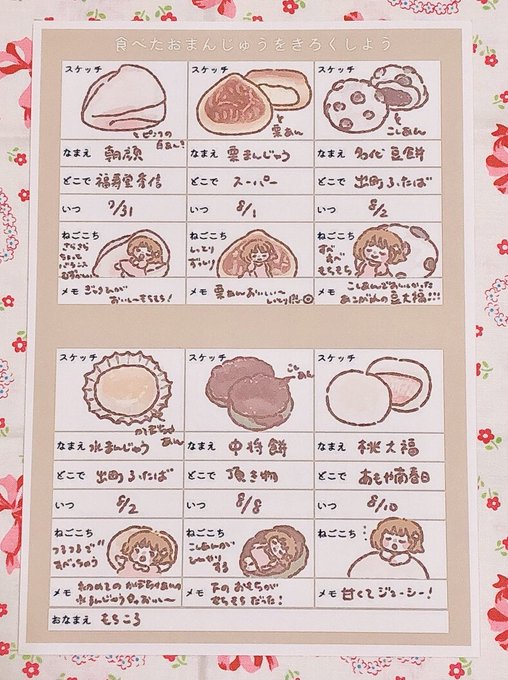 食べたおまんじゅうをきろくしよう
スケッチ
とピンクの
白あん
なまえ 朝顔
どこで 福寿堂秀信
いつ 7/31
ねごこち
さらさら
ちょっと
バランス
むずかしい
メモ ぎゅうひが
おいし〜もちもち!
スケッチ
と
栗あん
なまえ 栗まんじゅう
どこで スーパー
いつ 8/1
ねごこち
しっとり
ずっしり
メモ 栗あんおいしい〜
スケッチ
と
こしあん
なまえ 名代豆餅
どこで 出町ふたば
いつ 8/2
ねごこち
すべ
すべ
もちもち
メモ こしあんがおいしかった
あこがれの豆大福!!!
スケッチ
かぼちゃ
あん
なまえ 水まんじゅう
どこで 出町ふたば
いつ 8/2
ねごこち
つるつるで
すべっちゃう
メモ 初めてのかぼちゃあんの
水まんじゅう
スケッチ
こしあん
なまえ 中将餅
どこで 頂き物
いつ 8/8
ねごこち
こしあんが
ひんやり
する
メモ 下のおもちが
もちもちだった!
スケッチ
なまえ 桃大福
どこで あもや南春日
いつ 8/10
ねごこち
メモ 甘くてジューシー!
おなまえ もちころ